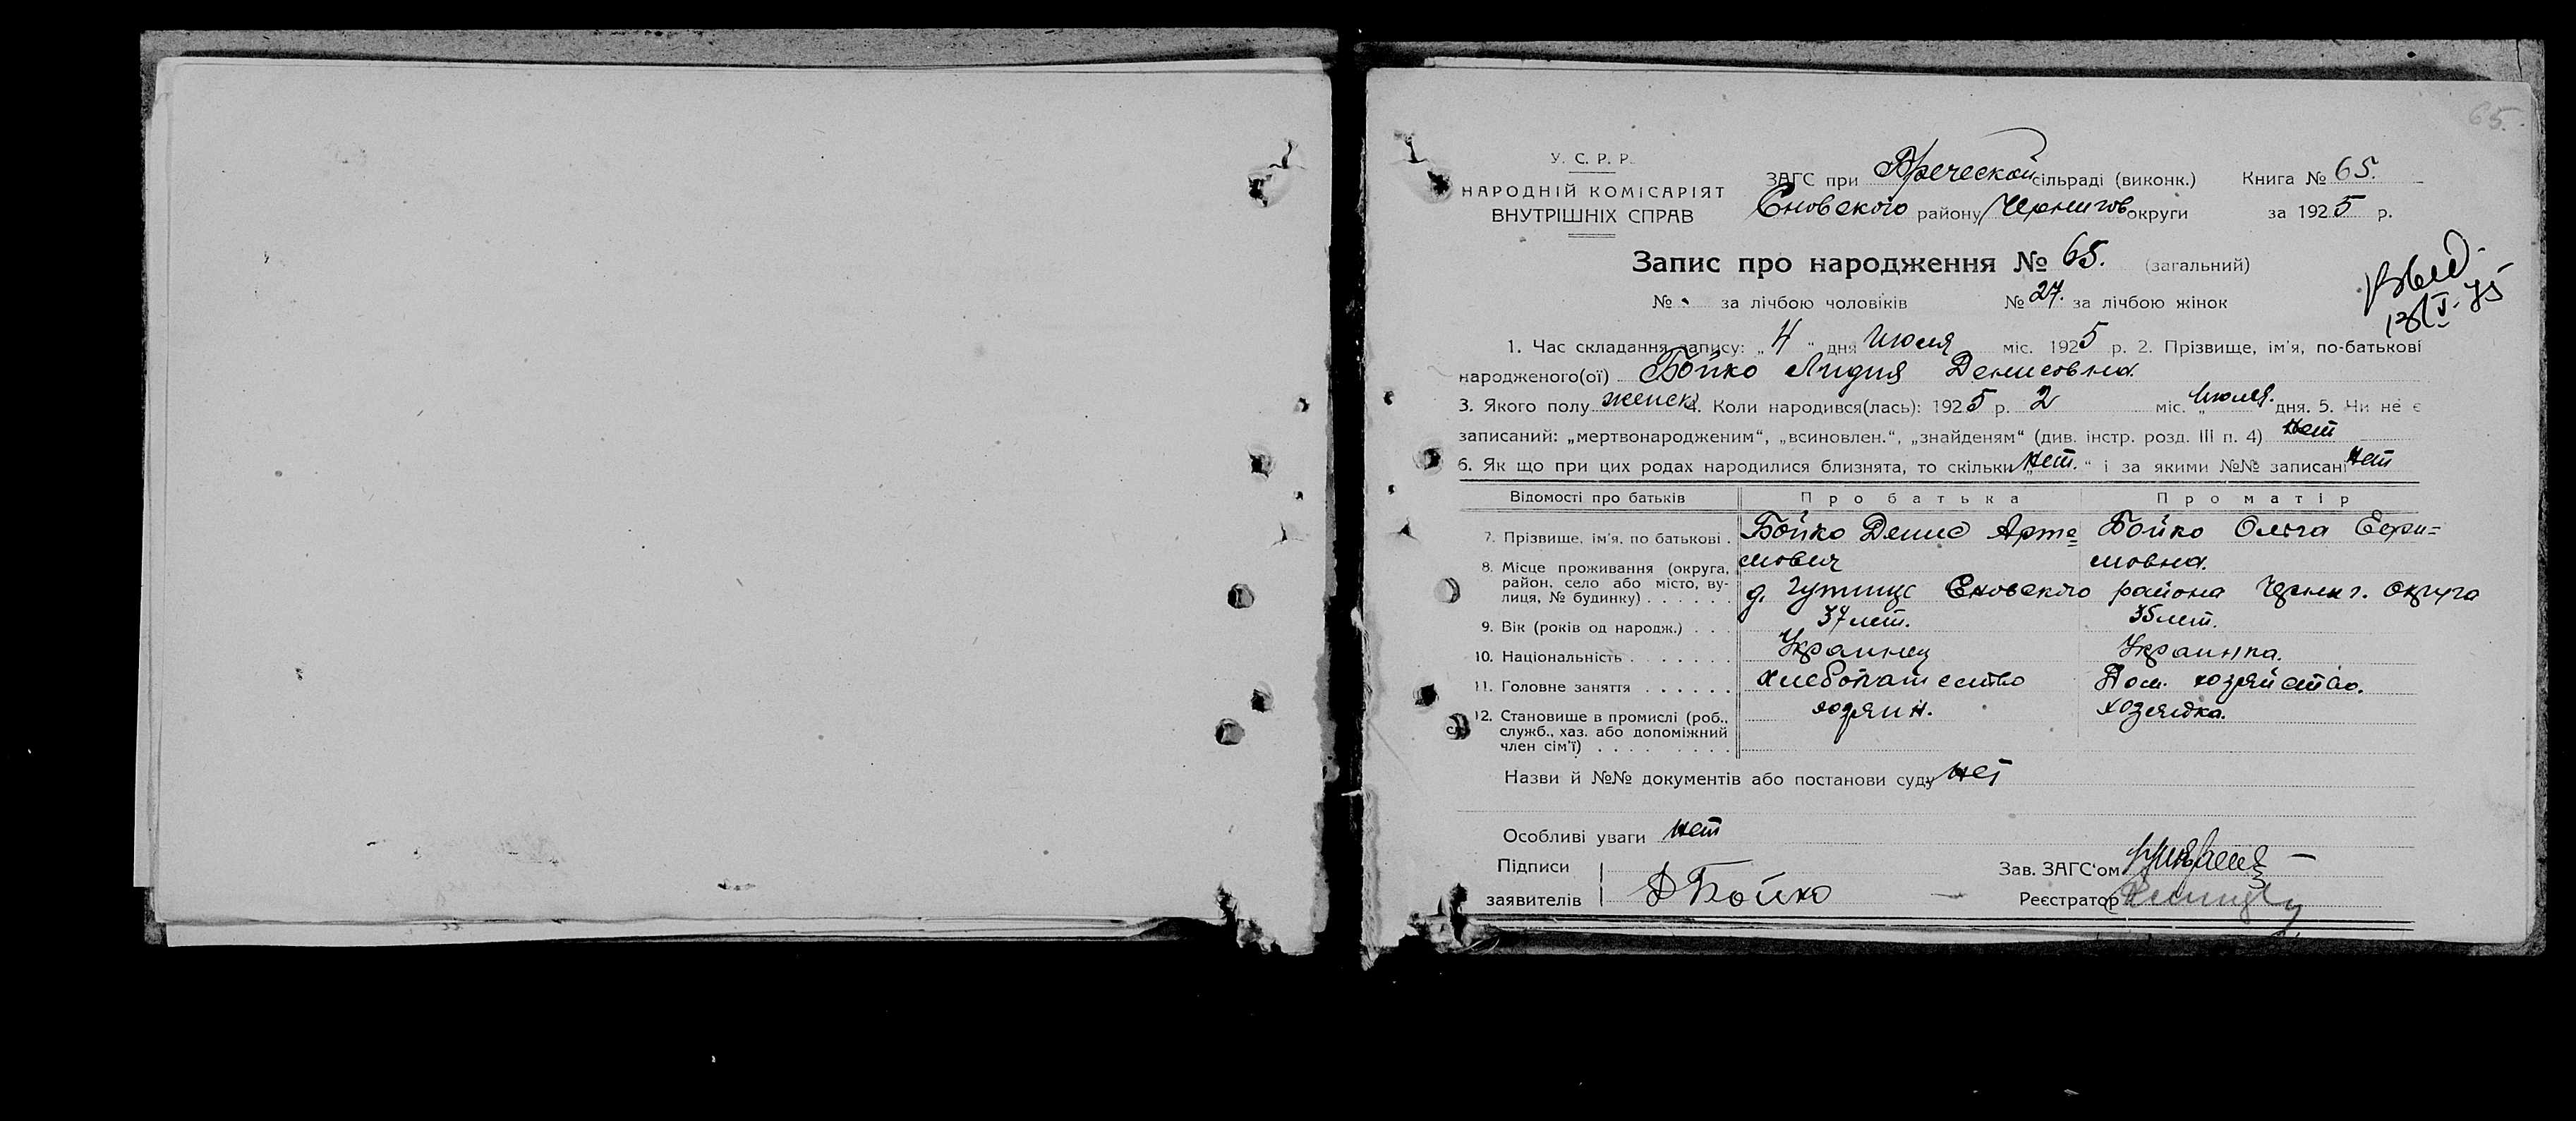 65.
У. С. Р. Р.
НАРОДНІЙ КОМІСАРІЯТ
ВНУТРІШНІХ СПРАВ
ЗАГС при сільраді (виконк.) Книга № 65.
Сновского району Чернигов округи за 1925 р.
Запис про народження № 65. (загальний)
№ за лічбою чоловіків № 27. за лічбою жінок
1. Час складання запису: „ 4 " дня Июля міс. 1925 р. 2. Прізвище, ім'я, по-батькові
народженого(ої) Бойко Лидия Денисовна.
3. Якого полу женск 4. Коли народився(лась): 1925 р. 2 міс. „ Июля. дня. 5. Чи не є
записаний: „мертвонародженим“, „всиновлен.“, „знайденям“ (див. інстр. розд. III п. 4) нет
6. Як що при цих родах народилися близнята, то скільки „ нет. “ і за якими №№ записані нет
Відомості про батьків Про батька Про матір
7. Прізвище, ім'я, по батькові . Бойко Денис Арте= Бойко Ольга Ефи=
мович мовна.
8. Місце проживання (округа,
район, село або місто, ву-
лиця, № будинку) . . . . . . д. Гутище Сновского района Черниг. округа
9. Вік (років од народж.) . . . 37 лет. 35 лет.
10. Національність . . . . . . . Украинец Украинка.
11. Головне заняття . . . . . . хлебопашество Дом. хозяйство.
12. Становище в промислі (роб., хозяин. хозяйка.
служб., хаз. або допоміжний
член сім'ї) . . . . . . . . .
Назви й №№ документів або постанови суду нет
Особливі уваги нет
Підписи
заявителів Д Бойко
Зав. ЗАГС'ом
Реєстратор